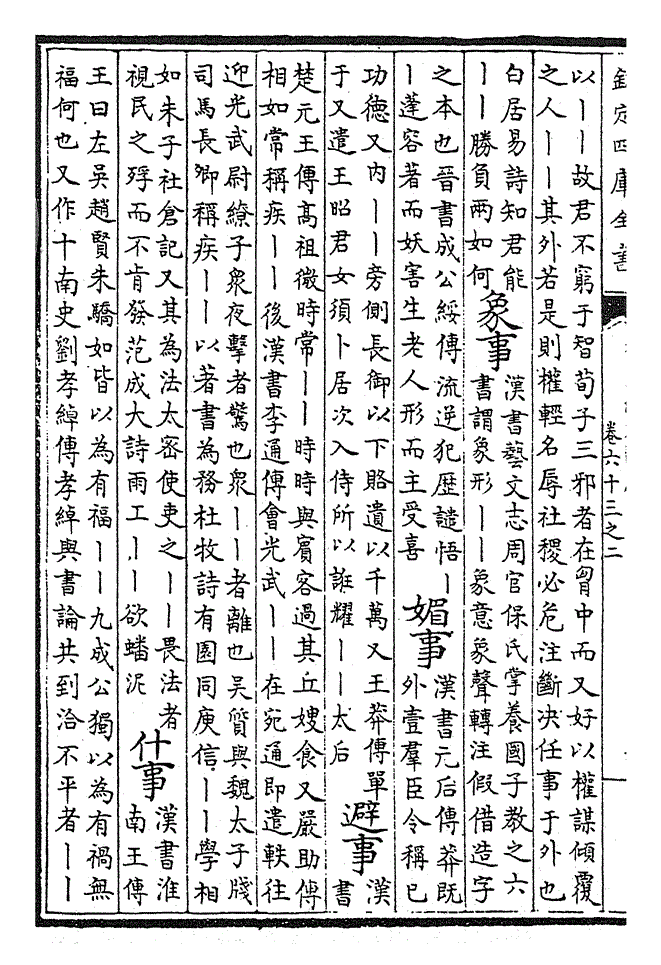 欽定四庫全書
卷六十三之二
以丨丨故君不窮于智荀子三邪者在胷中而又好以權謀傾覆
之人丨丨其外若是則權輕名辱社稷必危注斷決任事于外也
白居易詩知君能
丨丨勝負兩如何
象事
漢書藝文志周官保氏掌養國子教之六
書謂象形丨丨象意象聲轉注假借造字
之本也晉書成公綏傳流逆犯歴譴悟丨
丨蓬容著而妖害生老人形而主受喜
媚事
漢書元后傳莽既
外壹羣臣令稱已
功德又内丨丨旁側長御以下賂遺以千萬又王莽傳單
于又遣王昭君女須卜居次入侍所以誑耀丨丨太后
避事
漢
書
楚元王傳髙祖微時常丨丨時時與賓客過其丘嫂食又嚴助傳
相如常稱疾丨丨後漢書李通傳會光武丨丨在宛通即遣軼往
迎光武尉繚子衆夜擊者驚也衆丨丨者離也吳質與魏太子牋
司馬長卿稱疾丨丨以著書為務杜牧詩有園同庾信丨丨學相
如朱子社倉記又其為法太宻使吏之丨丨畏法者
視民之殍而不肯發范成大詩雨工丨丨欲蟠泥
什事
漢書淮
南王傳
王曰左吳趙賢朱驕如皆以為有福丨丨九成公獨以為有禍無
福何也又作十南史劉孝綽傳孝綽與書論共到洽不平者丨丨